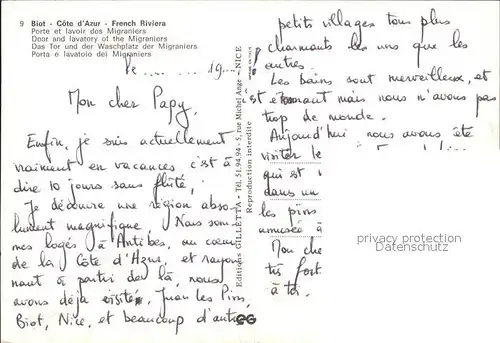 9 Biot - Côte d'Azur - French Riviera
Porte et lavoir des Migraniers
Door and lavatory of the Migraniers
Das Tor und der Waschplatz der Migraniers
Porta e lavatoio dei Migraniers
le 19
Mon cher Papy,
Enfin, je suis actuellement
vraiment en vacances c'est à
dire 10 jours sans flûte,
Je découvre une région abso-
lument magnifique. Nous som-
mes logés à Antibes, au coeur
de la Côte d'Azur, et rayon-
nant à partir de là, nous
avons déja visité, Juan les Pins,
Biot, Nice, et beaucoup d'autres
Editions GILLETTA - Tél. 51.94.94 - 5, rue Michel Ange - NICE
Reproduction interdite
petits villages tous plus
charmants les uns que les
autres.
Les bains sont merveilleux, et
est étonnant mais nous n'avons pas
trop de monde.
Aujourd'hui nous avons été
visiter le
qui est
dans un
les pins
amusée à
Mon che
très fort
à toi.
privacy protection
Datenschutz